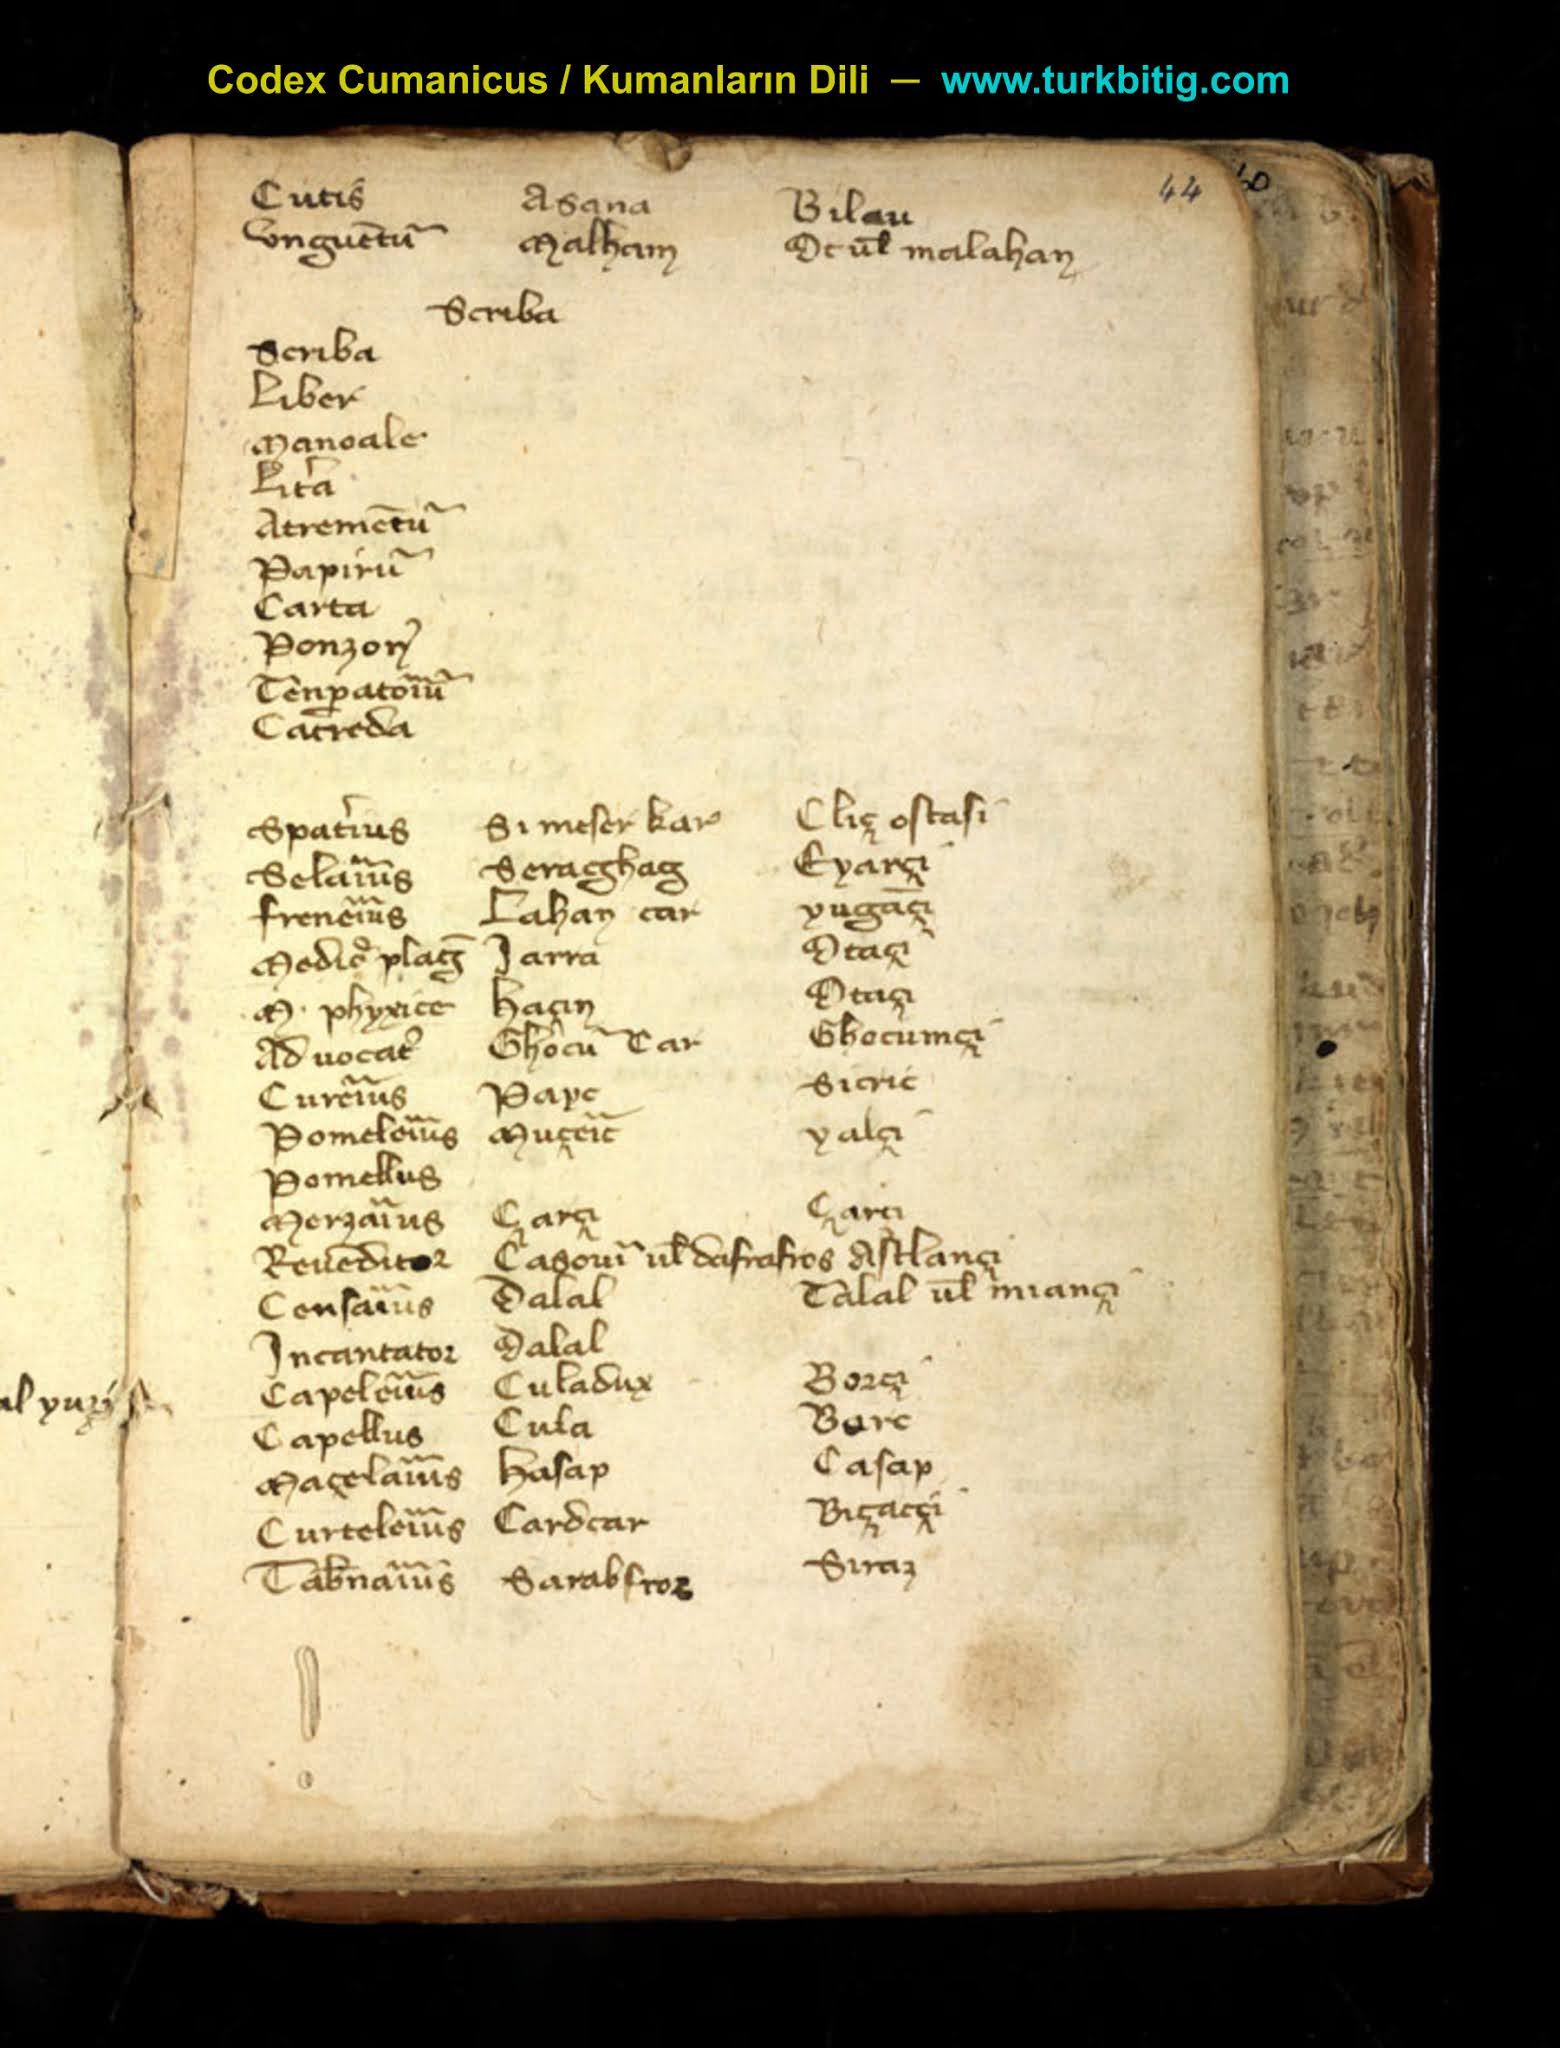 Codex Cumanicus / Kumanların Dili — www.turkbitig.com
44 60
Cutis Asana Bilau
Vnguētū Malham Oc ul̄ malahan
Scriba
Scriba
Liber
Manoale
Litr̄a
Atremētū
Papirū
Carta
Ponzon
Tēnpatoiū
Catreda
Spatrius Simeser kar Cliç ostasi
Selarius Seraghag Eyarçi
freneius Lahan car yugāçi
Medic plag Jarra Otaçi
M. phyxice haçin Otaçi
Aduocat Ghocū Car Ghocumçi
Cureius Payc Sicric
Pomeleius Muçeic yalçi
Pomellus
Merzarius Çarçi Çarçi
Reuēditor Casoui ul̄ dafrafros Astlançi
Censarius Dalal Talal ul̄ miançi
Incantator dalal
Capeleius Culadux Borçi
Capellus Cula Borc
Maçelarius hasap Casap
Curteleius Cardcar Biçacçi
Tab̄narius Sarabfroz Siraz
al yuzi